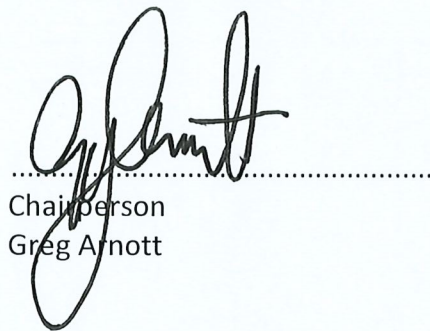 Chairperson
Greg Arnott